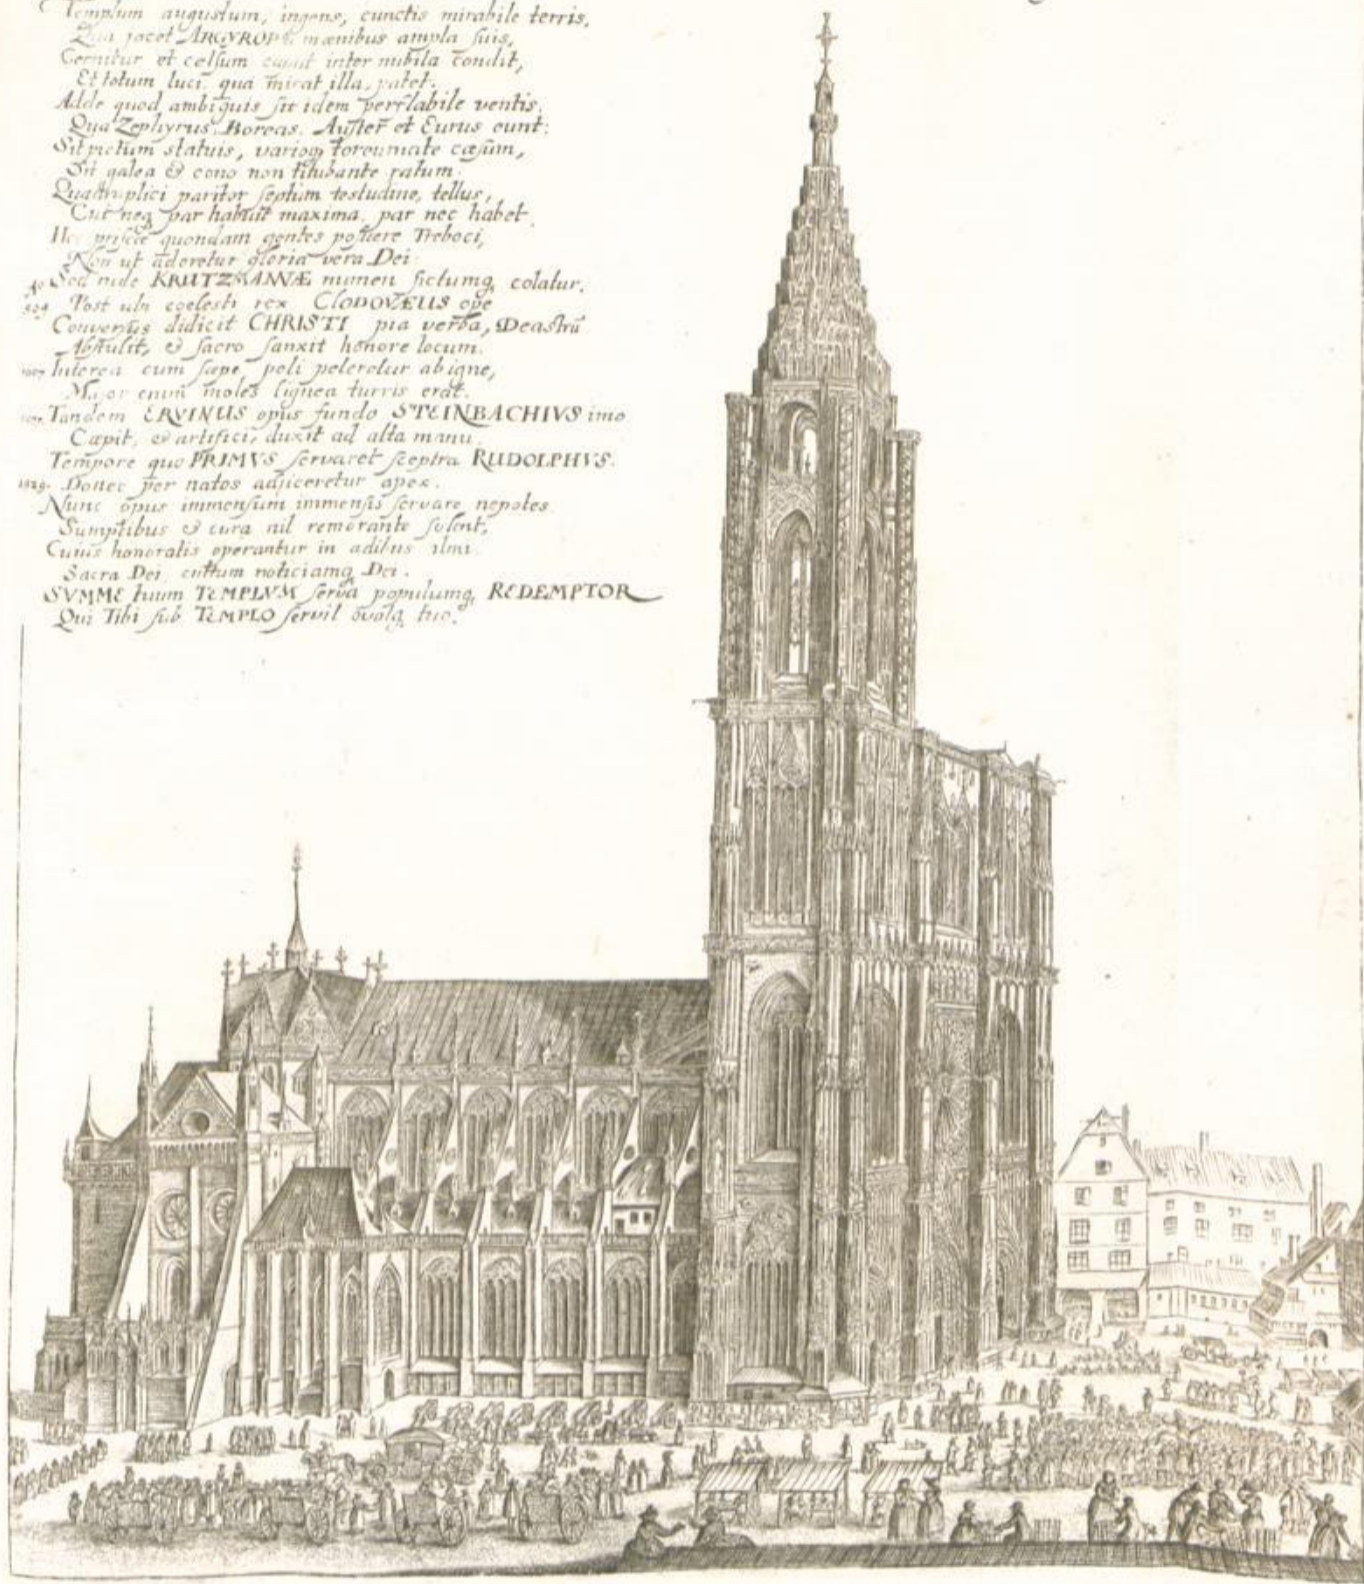 Templum augustum, ingens, cunctis mirabile terris,
Qua jacet ARGYROPE mœnibus ampla suis,
Cernitur et celsum caput inter nubila condit,
Et totum luci, qua micat illa, patet.
Adde quod ambiguis sit idem perflabile ventis,
Qua Zephyrus, Boreas, Auster et Eurus eunt:
Sit pictum statuis, varioq toreumate cæsum,
Sit galea & cono non titubante ratum.
Quadruplici pariter septum testudine, tellus,
Cui neq par habuit maxima, par nec habet.
Hoc priscæ quondam gentes posuere Treboci,
Non ut aderetur gloria vera Dei:
Sed rude KRUTZMANNÆ numen fictumq colatur.
Ao 509 Post ubi coelesti rex CLODOVÆUS ope
Conversus didicit CHRISTI pia verba, Deastrū
Abstulit, & sacro sanxit honore locum.
Interea cum sæpe poli peteretur ab igne,
Major enim moles lignea turris erat.
Tandem ERVINUS opus fundo STEINBACHIVS imo
Cæpit, & artifici, duxit ad alta manu.
Tempore quo PRIMVS servaret sceptra RUDOLPHVS.
Donec per natos adjiceretur apex.
Nunc opus immensum immensis servare nepotes
Sumptibus & cura nil remorante solent,
Cuius honoratis operantur in ædibus
Sacra Dei, cultum noticiamq Dei.
SVMME tuum TEMPLVM serva populumq REDEMPTOR
Qui Tibi sub TEMPLO servit ovatq tuo.